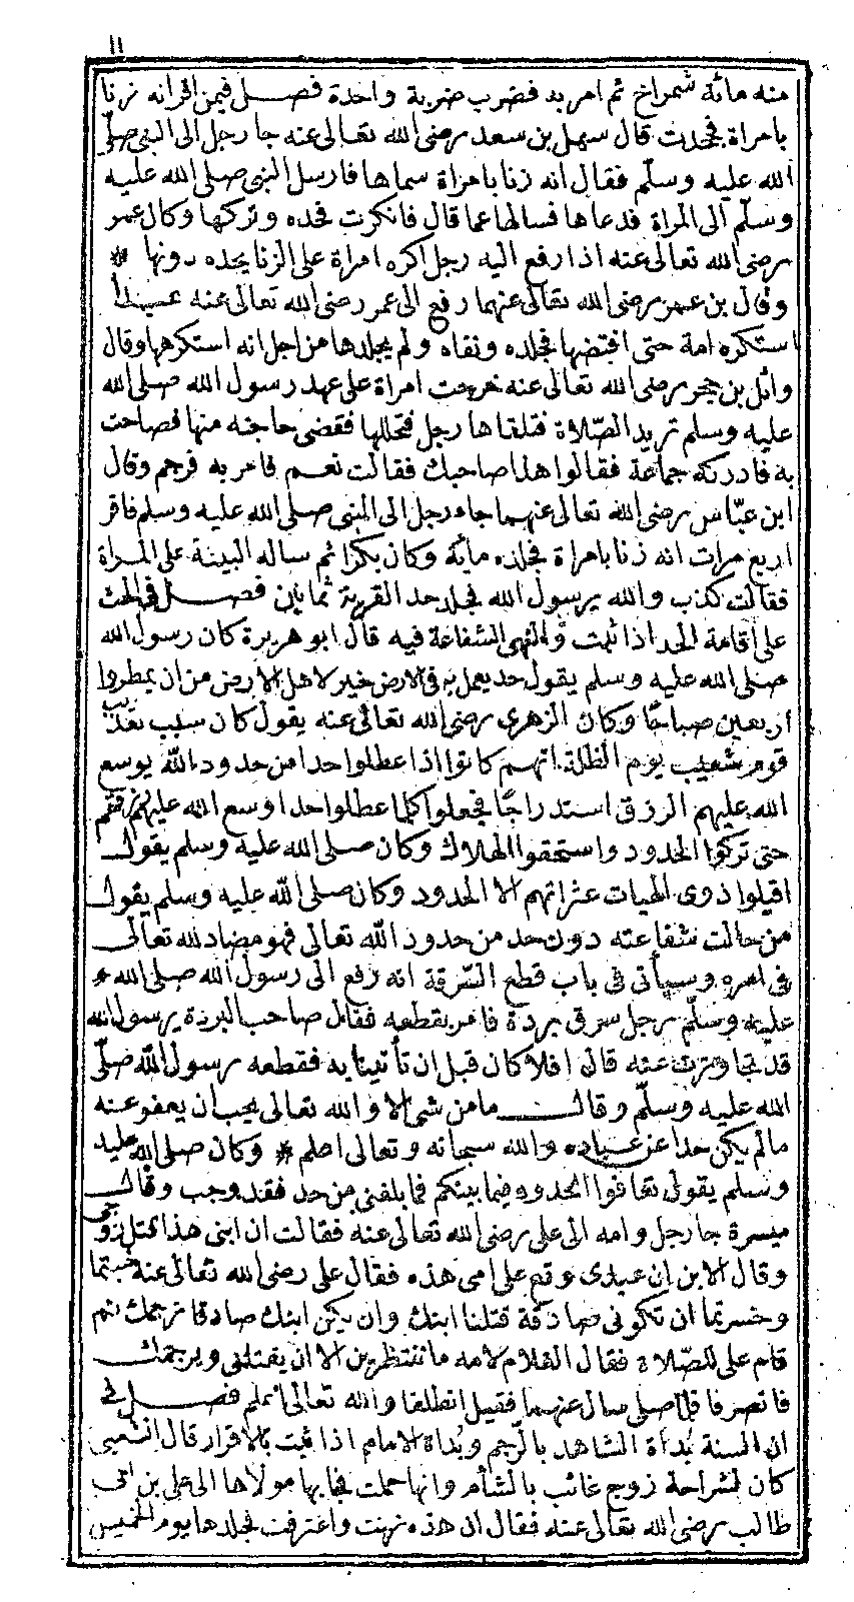 ١١
منه مائة شمراخ ثم امر به فضرب ضربة واحدة فصل فيمن اقر انه زنا
بامراة فجحدت قال سهل بن سعد رضى الله تعالى عنه جا رجل الى النبى صلى
الله عليه وسلم فقال انه زنا بامراة سماها فارسل النبى صلى الله عليه
وسلم الى المراة فدعاها فسالها عما قال فانكرت فحده وتركها وكان عمر
رضى الله تعالى عنه اذا رفع اليه رجل اكره امراة على الزنا يحده دونها *
وقال بن عمر رضى الله تعالى عنهما رفع الى عمر رضى الله تعالى عنه عبد
استكره امة حتى افتضها فجلده ونفاه ولم يجلدها من اجل انه استكرهها وقال
وائل بن حجر رضى الله تعالى عنه خرجت امراة على عهد رسول الله صلى الله
عليه وسلم تريد الصلاة فتلقاها رجل فتجللها فقضى حاجته منها فصاحت
به فادركه جماعة فقالوا هذا صاحبك فقالت نعم فامر به فرجم وقال
ابن عباس رضى الله تعالى عنهما جاء رجل الى النبى صلى الله عليه وسلم فاقر
اربع مرات انه زنا بامراة فجلده مائة وكان بكرا ثم ساله البينة على المراة
فقالت كذب والله يرسول الله فجلد حد القرية ثمانين فصل فى الحث
على اقامة الحد اذا ثبت والنهى الشفاعة فيه قال ابو هريرة كان رسول الله
صلى الله عليه وسلم يقول حد يعمل به فى الارض خير لاهل الارض من ان يمطروا
اربعين صباحًا وكان الزهرى رضى الله تعالى عنه يقول كان سبب تعذيب
قوم شعيب يوم الظلة انهم كانوا اذا عطلوا حدا من حدود الله يوسع
الله عليهم الرزق استدراجًا فجعلوا كلما عطلوا حدا وسع الله عليهم رزقهم
حتى تركوا الحدود واستحقوا الهلاك وكان صلى الله عليه وسلم يقول
اقيلوا ذوى الهيات عثراتهم الا الحدود وكان صلى الله عليه وسلم يقول
من حالت شفاعته دون حد من حدود الله تعالى فهو مضاد لله تعالى
فى امره وسيأتى فى باب قطع السرقة انه رفع الى رسول الله صلى الله
عليه وسلم رجل سرق بردة فامر بقطعه فقال صاحب البردة يرسول الله
قد تجاوزت عنه قال افلا كان قبل ان تأتينا به فقطعه رسول الله صلى
الله عليه وسلم وقال ما من شى الا والله تعالى يحب ان يعفو عنه
مالم يكن حدا عن عباده والله سبحانه وتعالى اعلم * وكان صلى الله عليه
وسلم يقول تعافوا الحدود فيما بينكم فما بلغنى من حد فقد وجب وقال
ميسرة جا رجل وامه الى على رضى الله تعالى عنه فقالت ان ابنى هذا قتل زوجى
وقال الابن ان عبدى وقع على امى هذه فقال على رضى الله تعالى عنه خبتما
وخسرتما ان تكونى صادقة قتلنا ابنك وان يكن ابنك صادقا نرجمك ثم
قام على للصلاة فقال الغلام لامه ما تنتظرين الا ان يقتلنى ويرجمك
فانصرفا فلما صلى سال عنهما فقيل انطلقا والله تعالى اعلم فصل فى
ان السنة بُداة الشاهد بالرجم وبُداة الامام اذا ثبت بالاقرار قال الشعبى
كان لشراحة زوج غائب بالشأم وانها حملت فجا بها مولاها الى على بن ابى
طالب رضى الله تعالى عنه فقال ان هذه زنت واعترفت فجلدها يوم الخميس